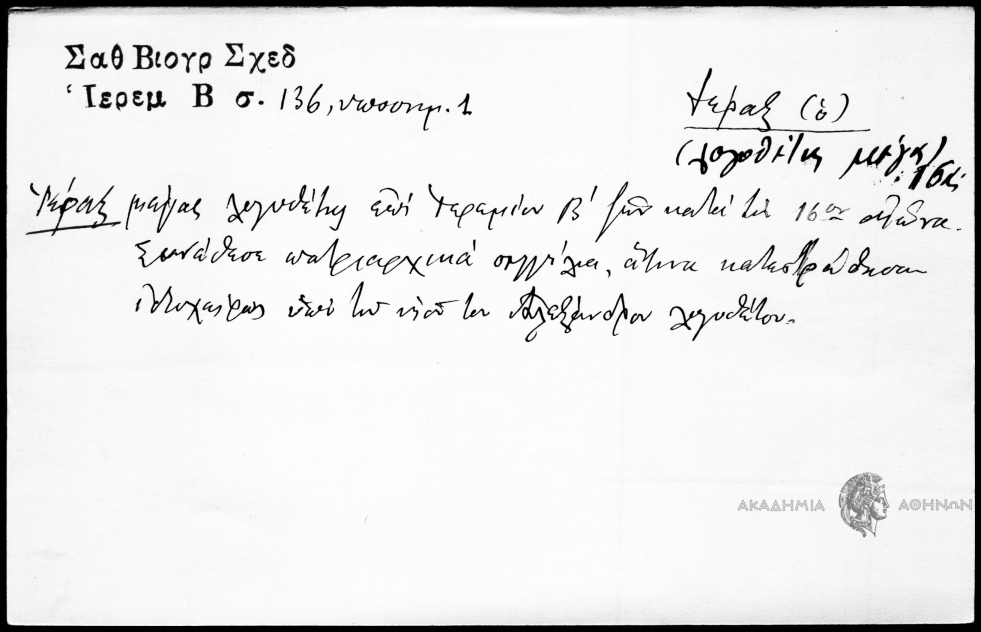 Σαθ Βιογρ Σχεδ
Ἱερεμ Β σ. 136, υποσημ. 1
Ἱέραξ (ὁ)
(λογοθέτης μέγας)
Ἱέραξ μέγας λογοθέτης ἐπί Ἱερεμίου Β΄ ζῶν κατά τόν 16ον αἰῶνα.
Συνέθεσε πατριαρχικά σιγγίλια, ἅτινα κατεστρώθησαν
ἰδιοχείρως ὑπό τοῦ υἱοῦ του Ἀλεξάνδρου λογοθέτου.
ΑΚΑΔΗΜΙΑ ΑΘΗΝΩΝ